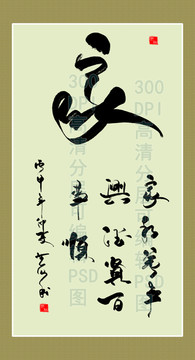 家
家和萬事
興
百
事順
丙申年仲夏
300
DPI
高清分层可编辑
PSD
图
300
DPI
高清分层可编辑
PSD
图